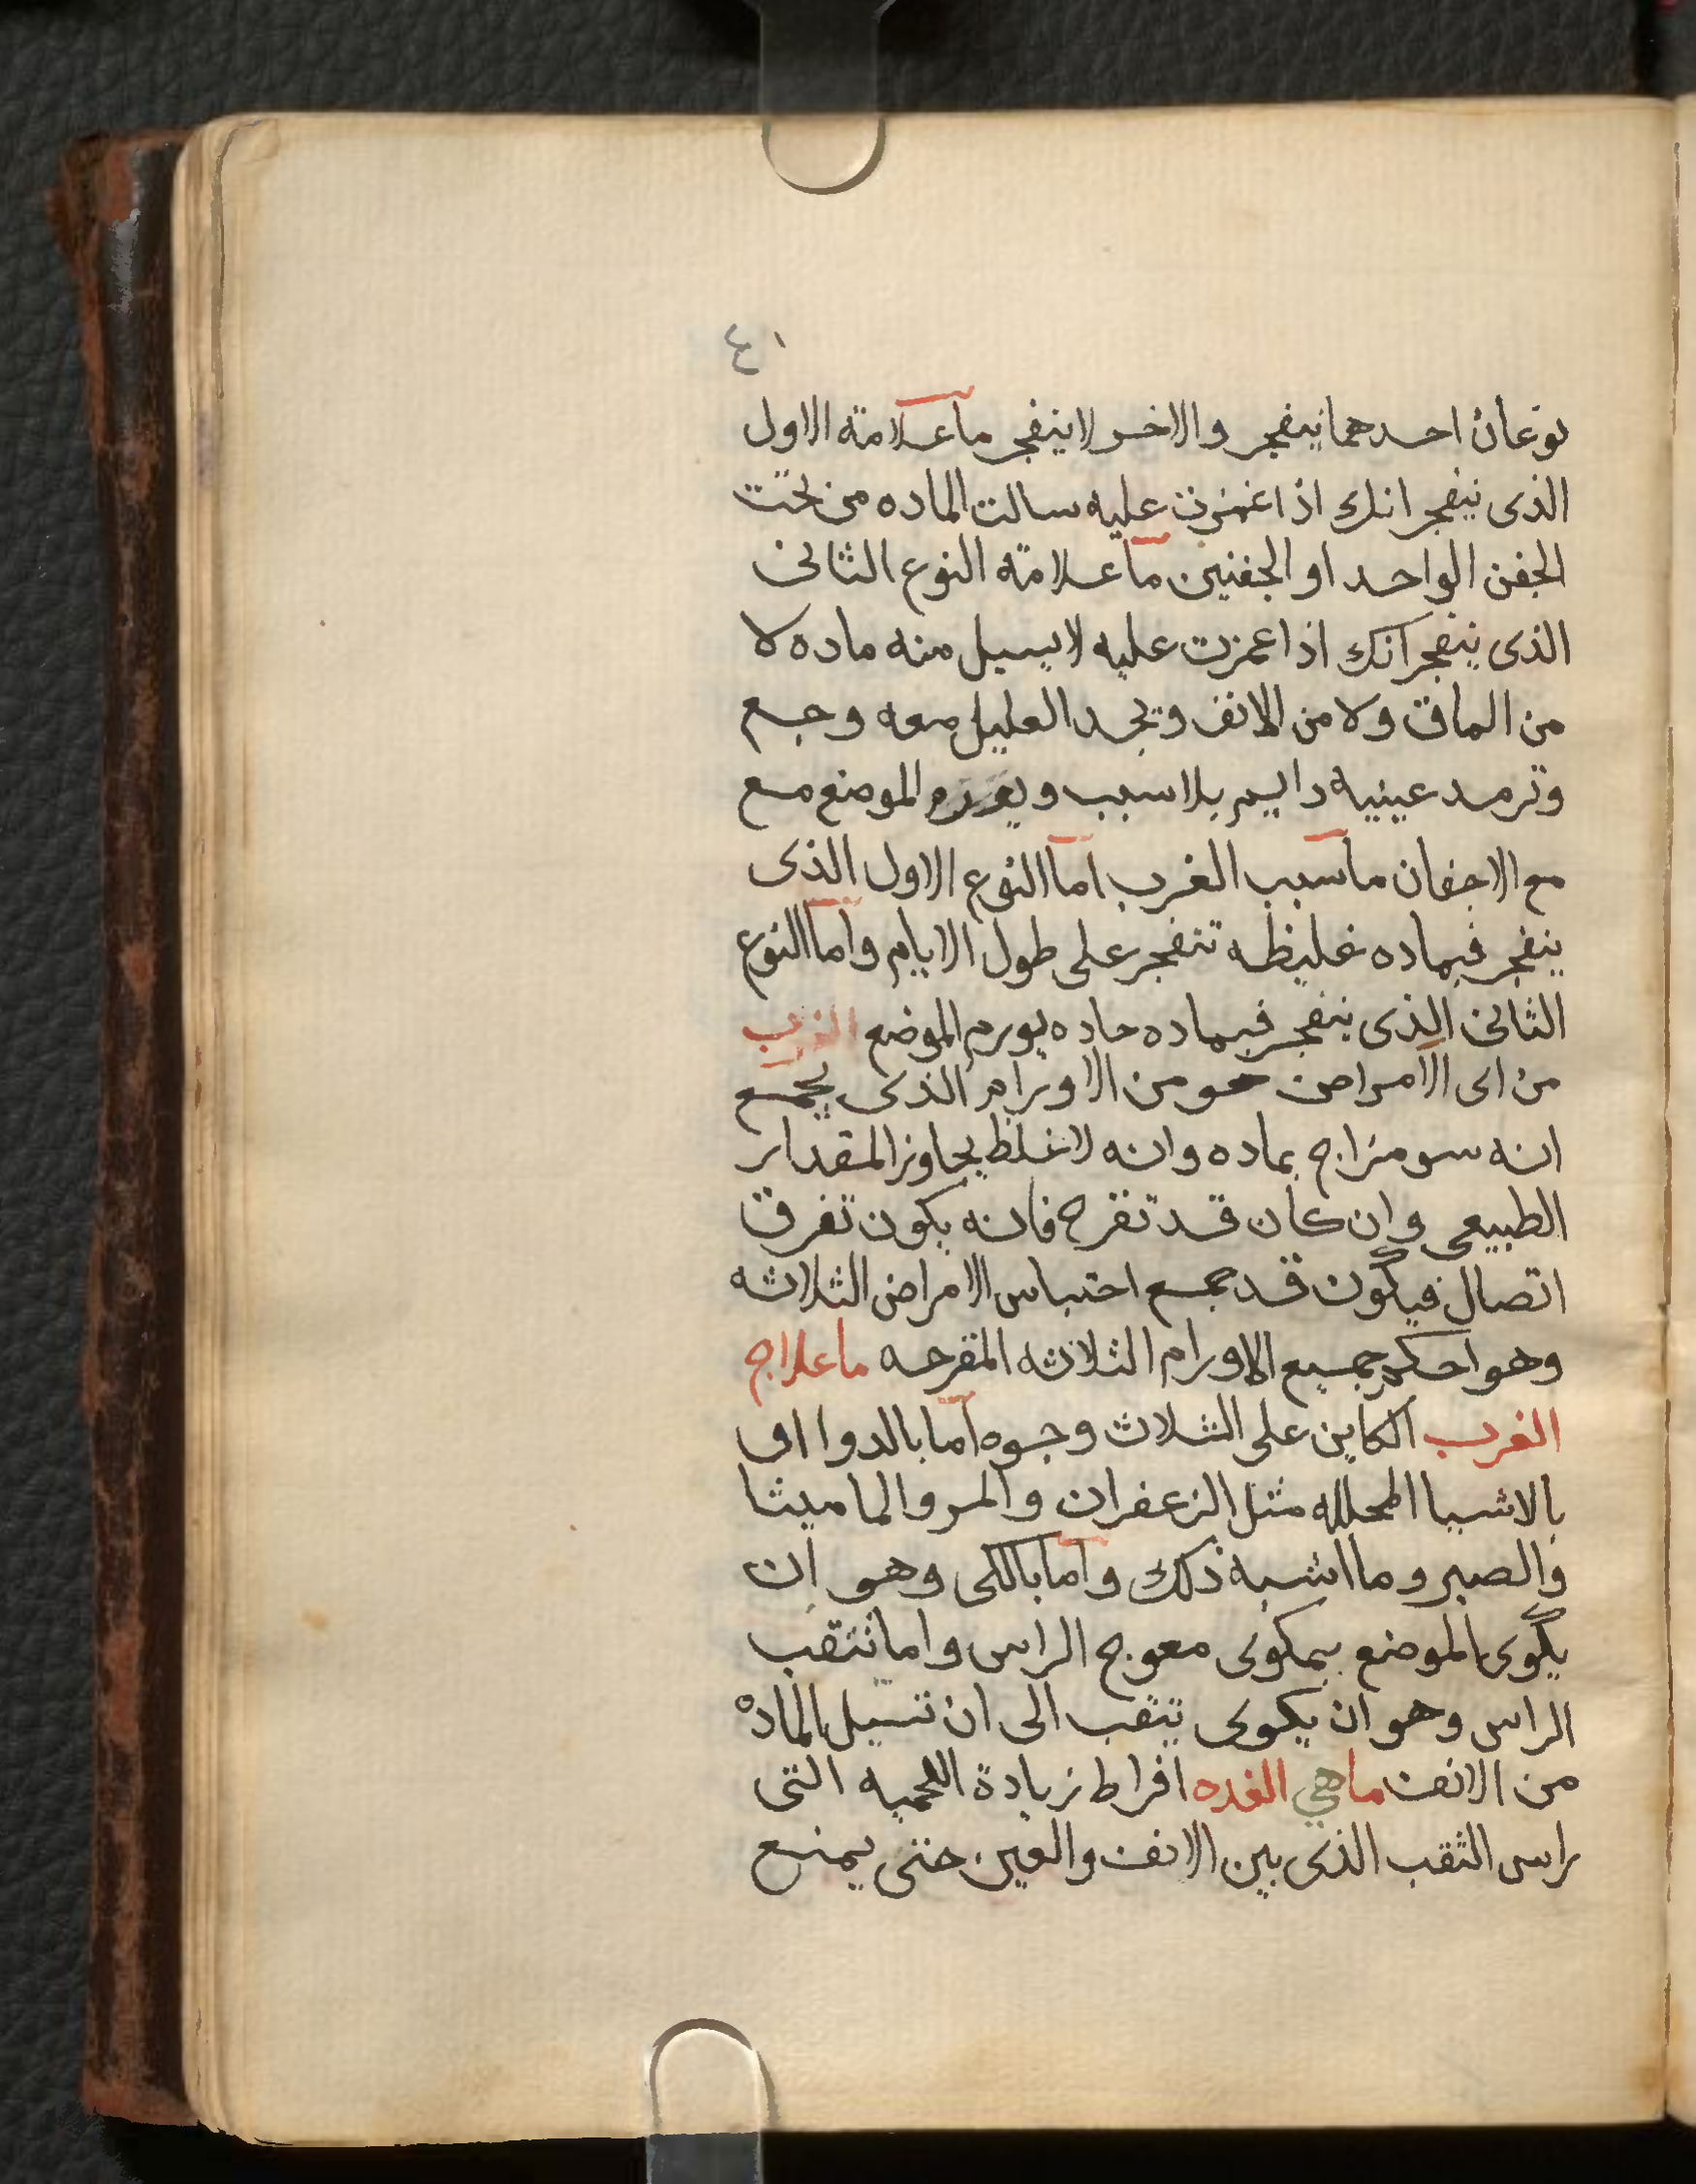 ٤١
نوعان احدهما ينفجر والاخر لا ينفجر ما علامة الاول
الذى ينفجر انك اذا غمزت عليه سالت الماده من تحت
الجفن الواحد او الجفنين ما علامة النوع الثانى
الذى ينفجر انك اذا غمزت عليه لا يسيل منه ماده لا
من الماق ولا من الانف ويجد العليل معه وجع
وترمد عينيه دايم بلا سبب الموضع مع
مع الاجفان ما سبب الغرب اما النوع الاول الذى
ينفجر فبماده غليظه تنفجر على طول الايام واما النوع
الثانى الذى ينفجر فبماده حاده يورم الموضع الغرب
من اى الامراض هو من الاورام الذى يجمع
انه سو مزاج بماده وانه لاغلظ يجاوز المقدار
الطبيعى وان كان قد تقرح فانه يكون تفرق
اتصال فيكون قد جمع احتباس الامراض الثلاثه
وهو احكم جميع الاورام الثلاثه المقرحه ما علاج
الغرب الكاين على الثلاث وجوه اما بالدوا اى
بالاشيا المحلله مثل الزعفران والمر والماميثا
والصبر وما اشبه ذلك واما بالكى وهو ان
يكوى الموضع بمكوى معوج الراس واما نتقب
الراس وهو ان يكوى تتقب الى ان تسيل الماده
من الانف ما هي الغده افراط زيادة اللحميه التى
راس الثقب الذى بين الانف والعين حتى يمنع